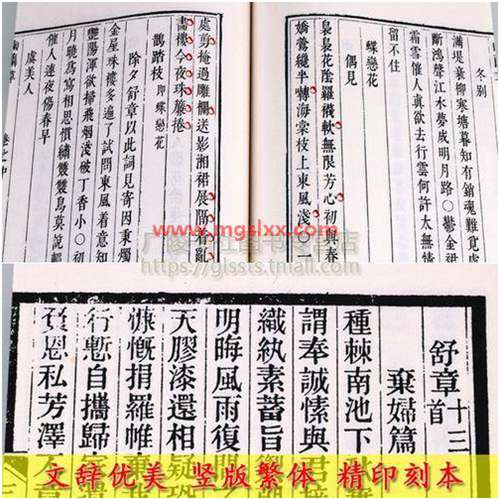 冬別
滿堤衰柳寒塘暮知有銷魂難覓處
斷鴻聲江水夢成明月路○鬱金裙
雪亭催人真欲去行雲何許太無情
留不住
蝶戀花
偶見
裊裊花陰羅襪軟無限芳心初與春
嬌鶯纔半轉海棠枝上東風淺○一
處剪掩過雕欄送影湘裙展隔看龍
書樓今夜珠簾捲
鵲踏枝 即蝶戀花
除夕舒章以此詞見寄因秉燭
金屋珠樓多遍了試問東風着意知
艷陽渾欲掃飛烟淺破丁香小○初
月曉為寫相思慣繡雙雙鳥莫說輕
催人連夜傷春早
虞美人
卷之中
www.mgslxx.com
https://glssts.tmall.com
舒章 十三首
棄婦篇
種棘南池下
謂奉誠愫與君
織紈素蓄旨
明晦風雨復
天膠漆還相疑
慷慨捐羅帷
行慙自攜歸
恩私芳澤不
文辞优美 竖版繁体 精印刻本